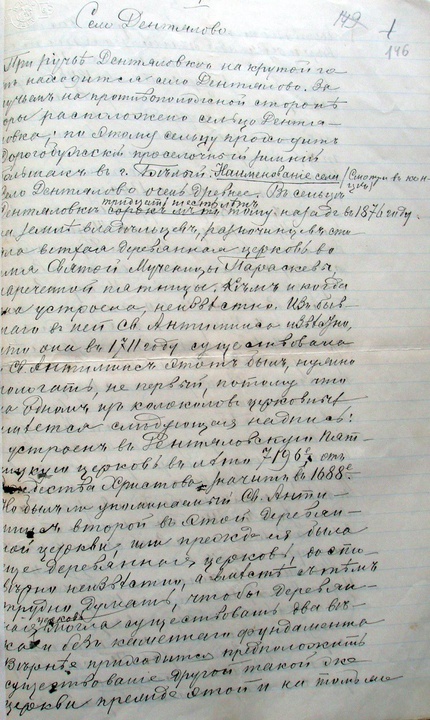 142
1
146
Село Дентялово
При ручьѣ Дентяловкѣ на крутой го-
рѣ находится село Дентялово. За
ручьемъ на противоположной сторонѣ
горы расположено сельцо Дентя-
ловка; по этому сельцу проходитъ
Дорогобужскій проселочный зимній
большакъ въ г. Бѣлый. Наименованіе села (Смотри въ кон-
цѣ)
Село Дентялово очень древнее. Въ сельцѣ
тридцать шесть лѣтъ
Дентяловкѣ тому назадъ въ 1876 году.
на землѣ владѣлицы, разночинца сто-
яла ветхая деревянная церковь во
имя Святой Мученицы Параскевы,
нареченной пятницы. Кѣмъ и когда
она устроена, неизвѣстно. Изъ быв-
шаго въ ней Св. Антиминса извѣстно,
что она въ 1711 году существовала
Св. Антиминсъ этотъ былъ, нужно
полагать, не первый, потому что
на одномъ изъ колоколовъ церковныхъ
имѣется слѣдующая надпись:
устроенъ въ Дентяловскую Пят-
ницкую церковь въ лѣто 7196е, отъ
Рождества Христова значитъ въ 1688е.
Но былъ ли упоминаемый Св. Анти-
минсъ второй въ этой деревян-
ной церкви, или прежде ея была
еще деревянная церковь, досто-
вѣрно неизвѣстно, а вмѣстѣ съ тѣмъ
трудно думать, чтобы деревян-
ная церковь могла существовать два вѣ-
ка и безъ каменнаго фундамента
Вѣрнѣе приходится предположить
существованіе другой такой же
церкви прежде этой и на томъ же